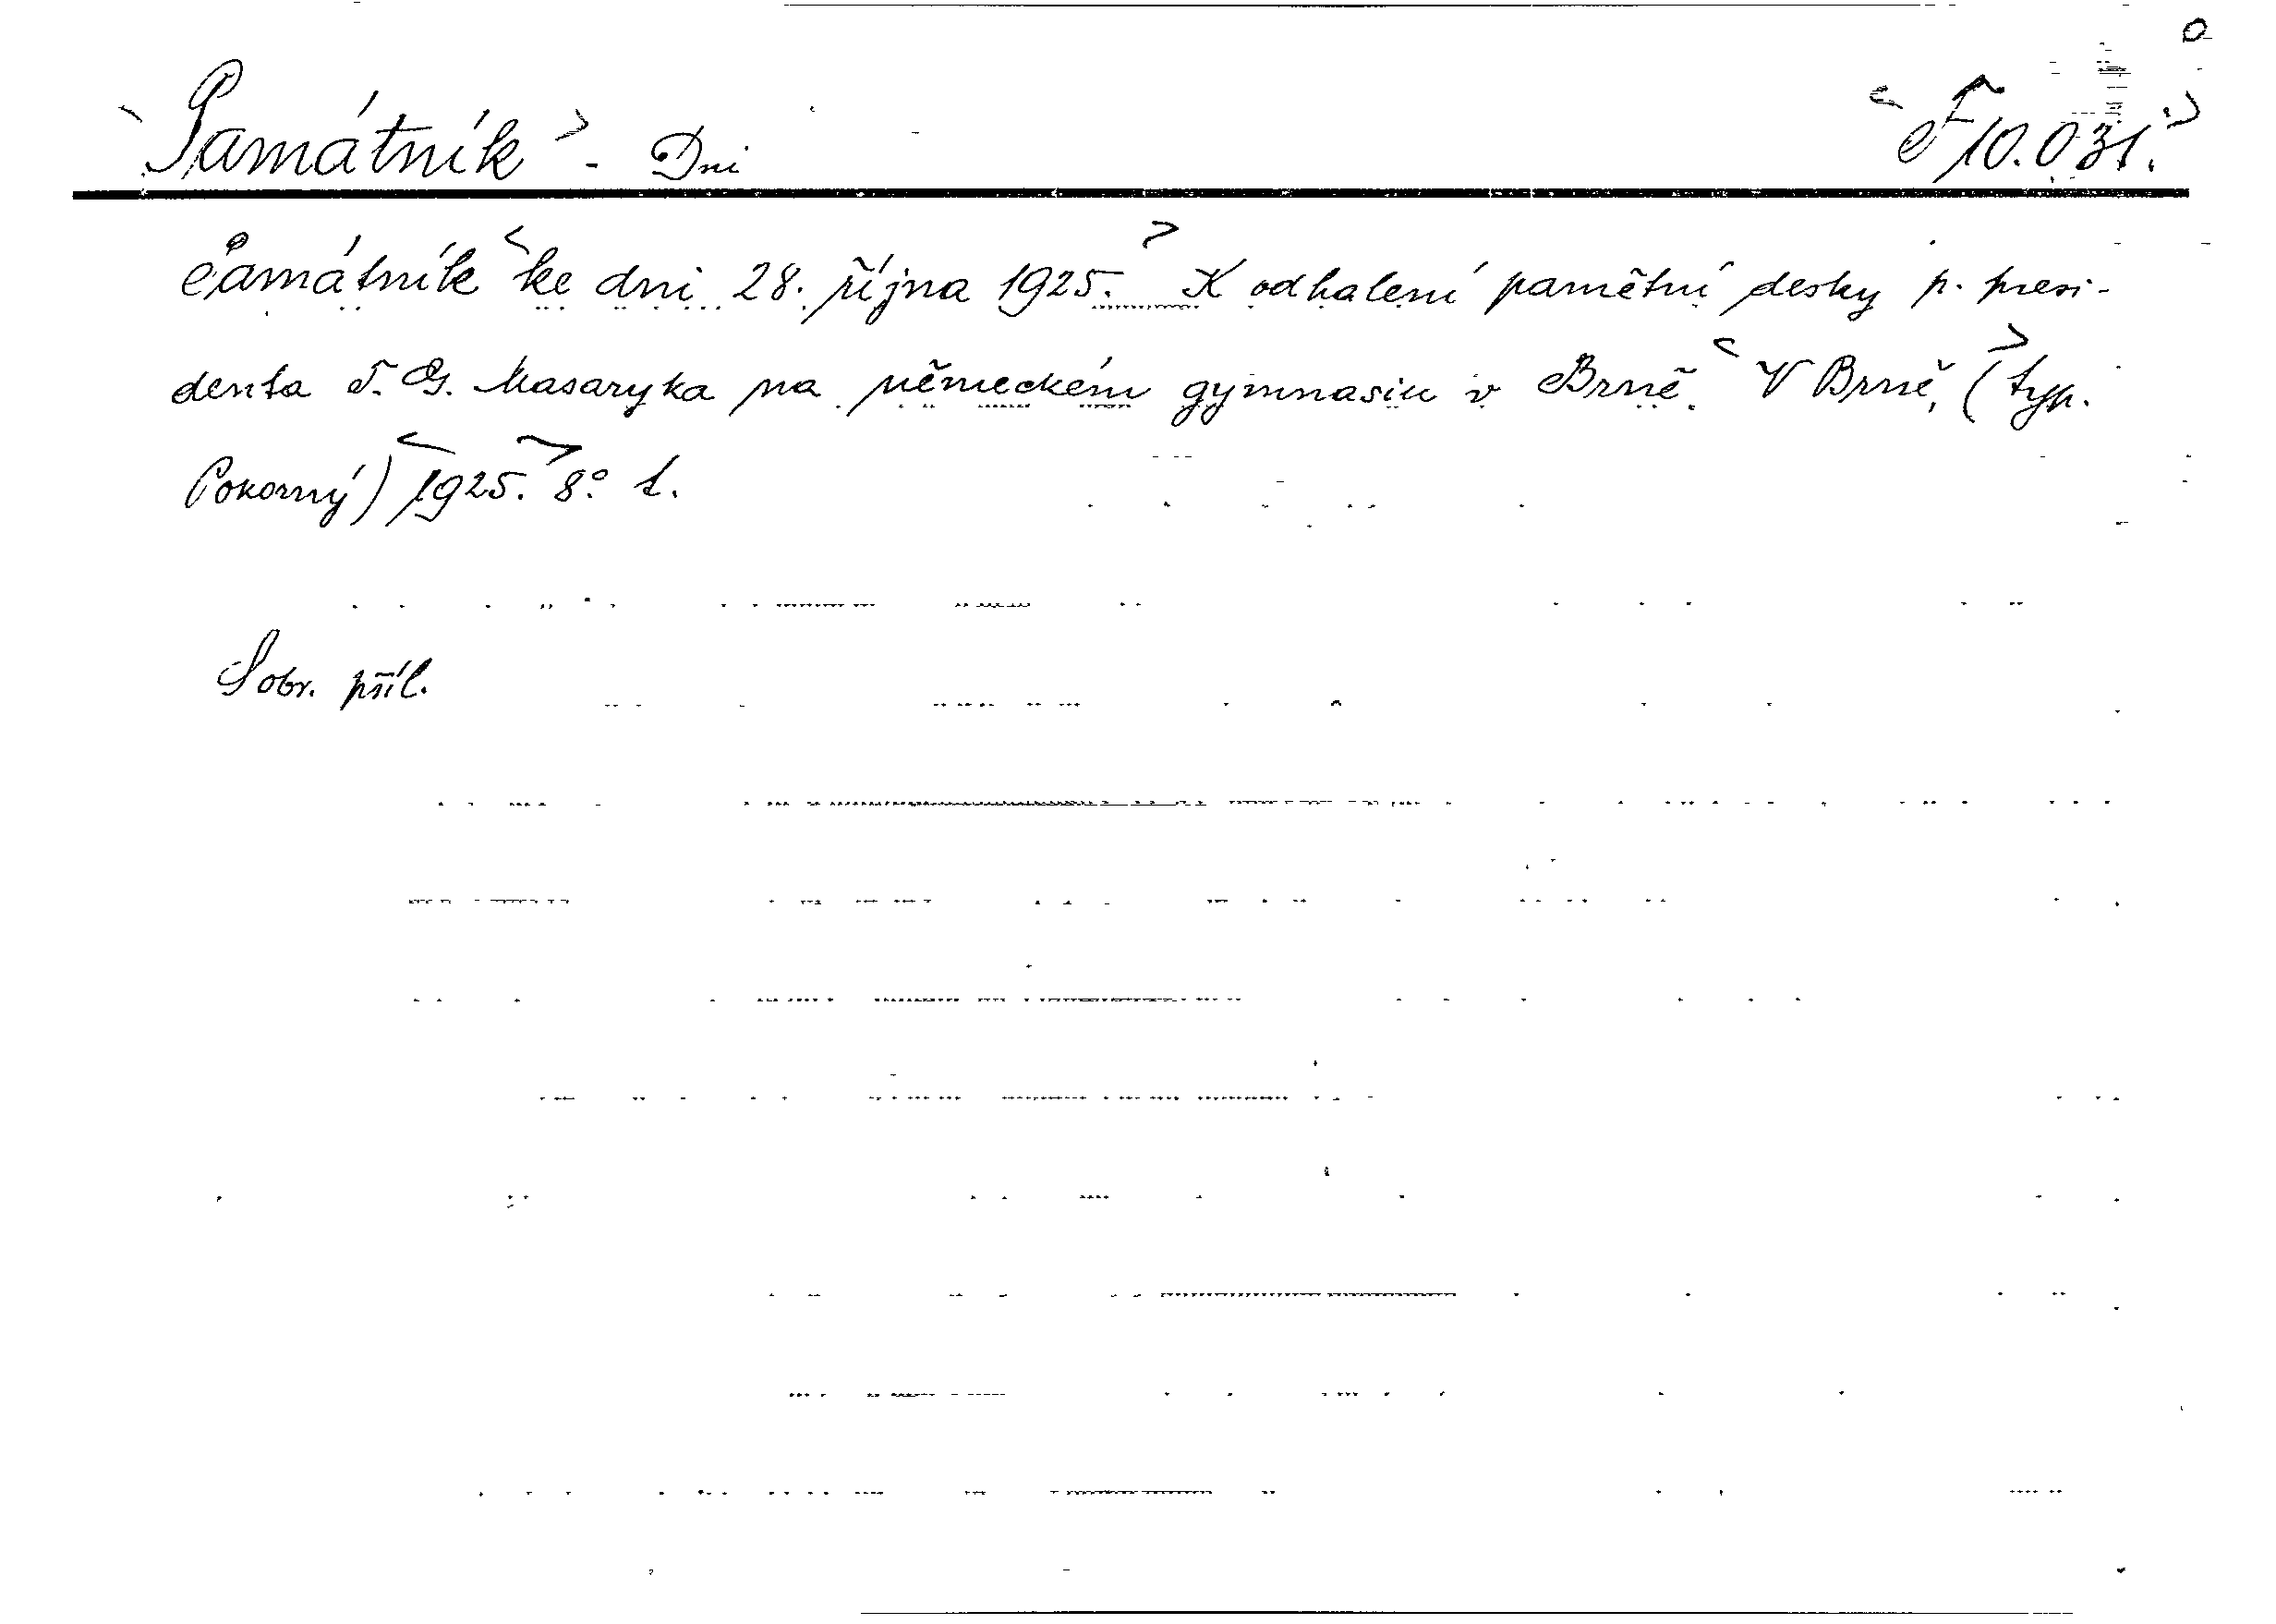 Památník - Dni
F 10.031.
Památník ke dni 28. října 1925. K odhalení pamětní desky p. presi-
denta T. G. Masaryka na německém gymnasiu v Brně. V Brně, (typ.
Pokorný) 1925. 8°. 1.
S obr. příl.